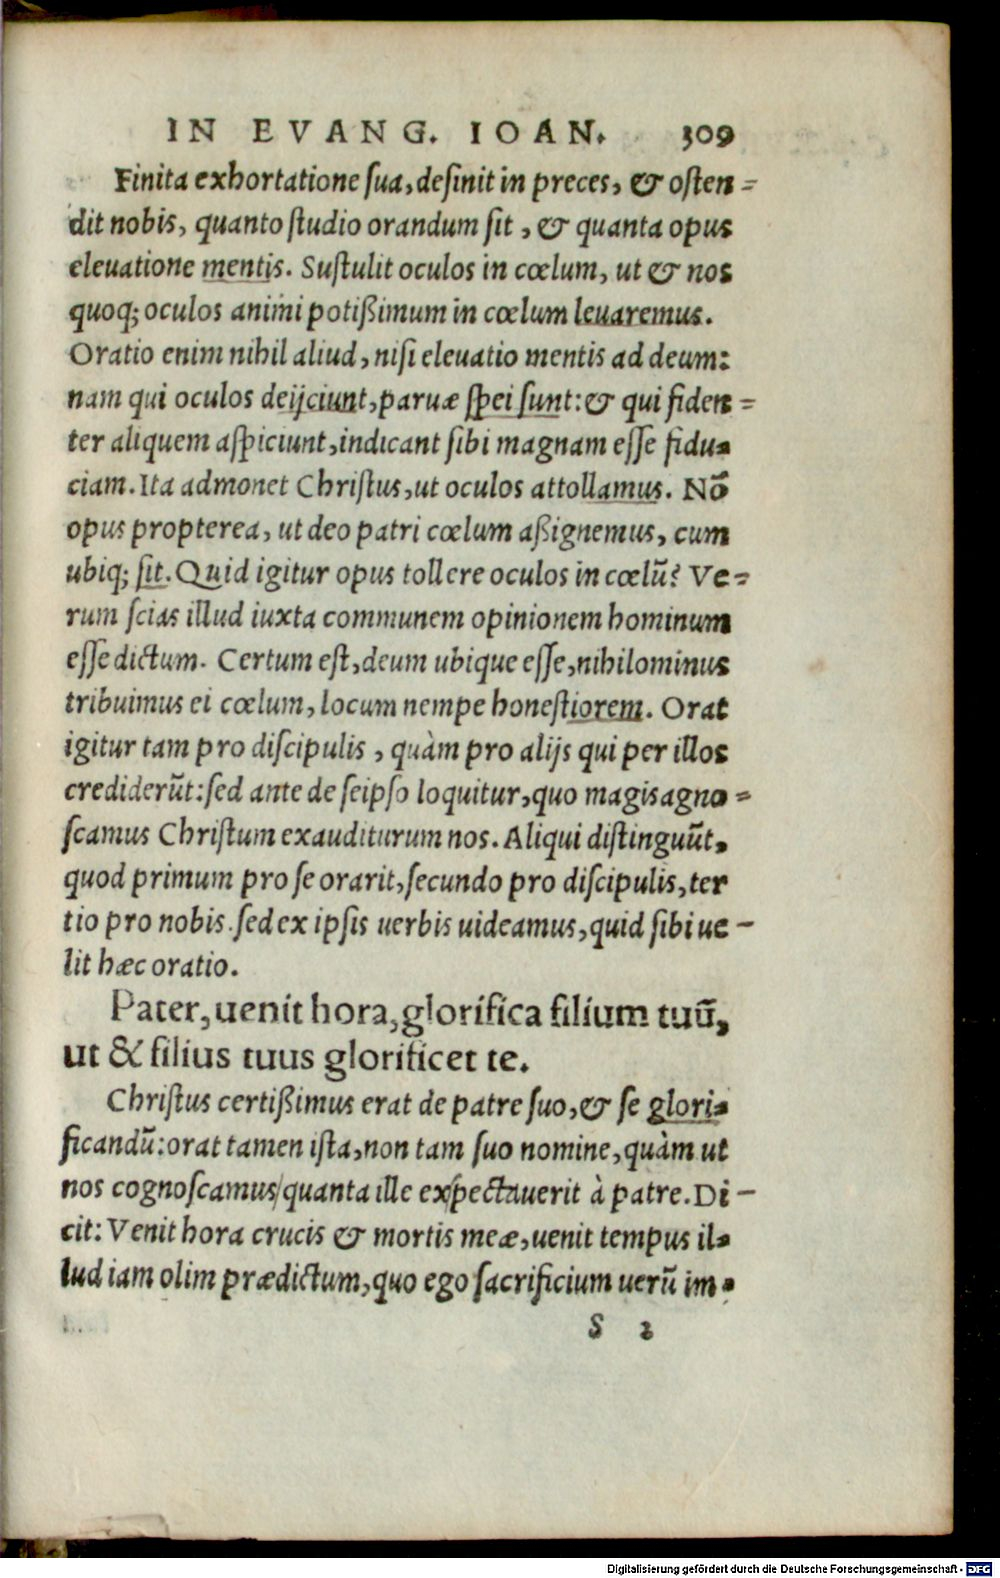 IN EVANG. IOAN. 309
Finita exhortatione ſua, deſinit in preces, & oſten-
dit nobis, quanto ſtudio orandum ſit, & quanta opus
eleuatione mentis. Suſtulit oculos in cœlum, ut & nos
quoq; oculos animi potißimum in cœlum leuaremus.
Oratio enim nihil aliud, niſi eleuatio mentis ad deum:
nam qui oculos deijciunt, paruæ ſpei ſunt: & qui fiden-
ter aliquem aſpiciunt, indicant ſibi magnam eſſe fidu-
ciam. Ita admonet Chriſtus, ut oculos attollamus. Nõ
opus propterea, ut deo patri cœlum aßignemus, cum
ubiq; ſit. Quid igitur opus tollere oculos in cœlũ? Ve-
rum ſcias illud iuxta communem opinionem hominum
eſſe dictum. Certum eſt, deum ubique eſſe, nihilominus
tribuimus ei cœlum, locum nempe honeſtiorem. Orat
igitur tam pro diſcipulis, quàm pro alijs qui per illos
crediderũt: ſed ante de ſeipſo loquitur, quo magis agno-
ſcamus Chriſtum exauditurum nos. Aliqui diſtinguũt,
quod primum pro ſe orarit, ſecundo pro diſcipulis, ter
tio pro nobis. ſed ex ipſis uerbis uideamus, quid ſibi ue-
lit hæc oratio.
Pater, uenit hora, glorifica filium tuũ,
ut & filius tuus glorificet te.
Chriſtus certißimus erat de patre ſuo, & ſe glori-
ficandũ: orat tamen iſta, non tam ſuo nomine, quàm ut
nos cognoſcamus/quanta ille expectauerit à patre. Di-
cit: Venit hora crucis & mortis meæ, uenit tempus il-
lud iam olim prædictum, quo ego ſacrificium uerũ im-
S 2
Digitalisierung gefördert durch die Deutsche Forschungsgemeinschaft - DFG